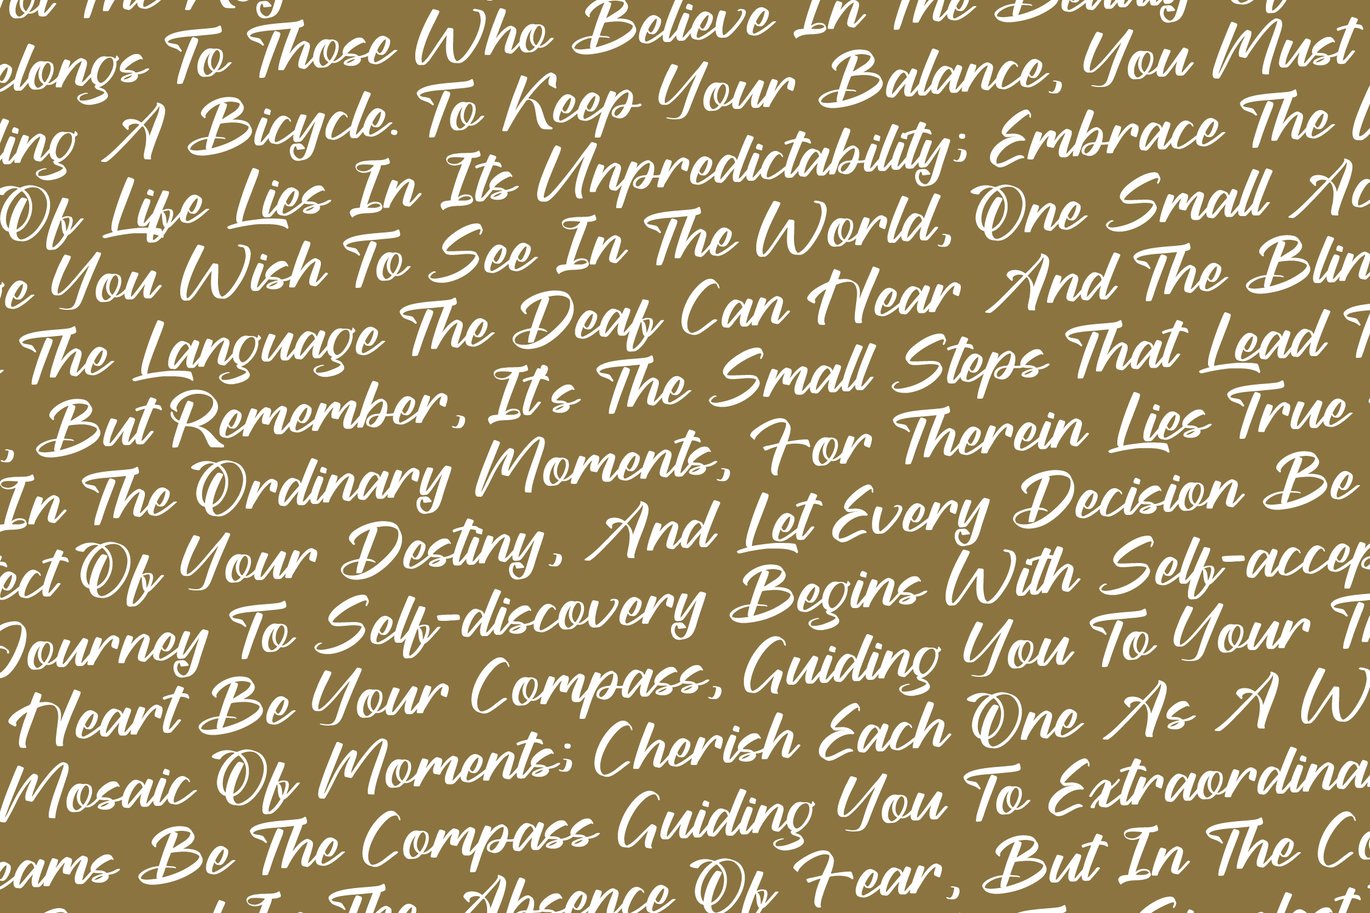 The
elongs To Those Who Believe In The Beauty Of
ling A Bicycle. To Keep Your Balance, You Must
Of Life Lies In Its Unpredictability; Embrace The
ge You Wish To See In The World, One Small Ac
The Language The Deaf Can Hear And The Blin
, But Remember, It's The Small Steps That Lead T
In The Ordinary Moments, For Therein Lies True
tect Of Your Destiny, And Let Every Decision Be
Journey To Self-discovery Begins With Self-accep
Heart Be Your Compass, Guiding You To Your T
Mosaic Of Moments; Cherish Each One As A W
eams Be The Compass Guiding You To Extraordina
In The Absence Of Fear, But In The Co